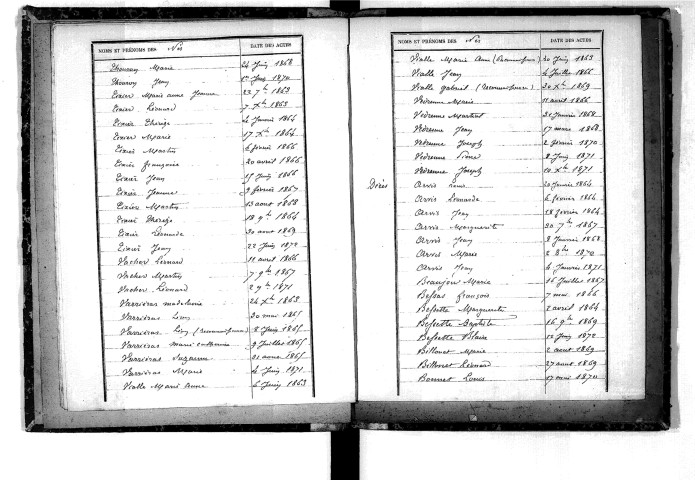 NOMS ET PRÉNOMS DES Nés DATE DES ACTES
Thouron Marie 24 Juin 1868
Thouron Jean 1er Juin 1870
Tixier Marie anne Jeanne 22 7bre 1863
Tixier Léonard 7 Xbre 1863
Tixier Thérèze 4 Janvier 1864
Tixier Marie 17 Xbre 1864
Tixier Martin 6 février 1866
Tixier françoise 20 avril 1866
Tixier Jean 17 Juin 1866
Tixier Jeanne 9 février 1867
Tixier Martin 13 aout 1868
Tixier Thérèze 18 9bre 1864
Tixier Léonarde 30 aout 1869
Tixier Jean 22 Juin 1872
Vacher Léonard 11 aout 1866
Vacher Martin 7 9bre 1867
Vacher Léonard 2 9bre 1871
Varriéras madeleine 24 Xbre 1863
Varriéras Louis 30 mai 1865
Varriéras (reconnaissance) 8 Juin 1865
Varriéras marie catherine 9 Juillet 1865
Varriéras Suzanne 1865
Varriéras Marie 4 Juin 1871
Vialle Marie Anne 6 Juin 1863
NOMS ET PRÉNOMS DES Nés DATE DES ACTES
Vialle Marie Anne (Reconnaissance) 20 Juin 1863
Vialle Jean 4 Juillet 1866
Vialle gabriel (Reconnaissance) 20 Xbre 1869
Védrenne Marie 11 avril 1866
Védrenne Martial 31 Janvier 1868
Védrenne Jean 17 mars 1868
Védrenne Joseph 2 février 1870
Védrenne Pierre 8 Juin 1871
Védrenne Joseph 10 Xbre 1871
Arvis 20 Janvier 1864
Arvis Léonarde 6 février 1864
Arvis Jean 18 février 1864
Arvis Marguerite 30 7bre 1867
Arvis Jean 3 Janvier 1868
Arvis Marie 2 8bre 1870
Arvis Jean 4 Janvier 1871
Beaujon Marie 16 Juillet 1867
Bessas françois 7 mai 1866
Bessette Marguerite 2 avril 1864
Bessette Baptiste 16 9bre 1869
Bessette Blaise 12 Juin 1872
Billonet Marie 2 aout 1869
Billonet Léonard 27 aout 1869
Bonnet Louis 17 mai 1870